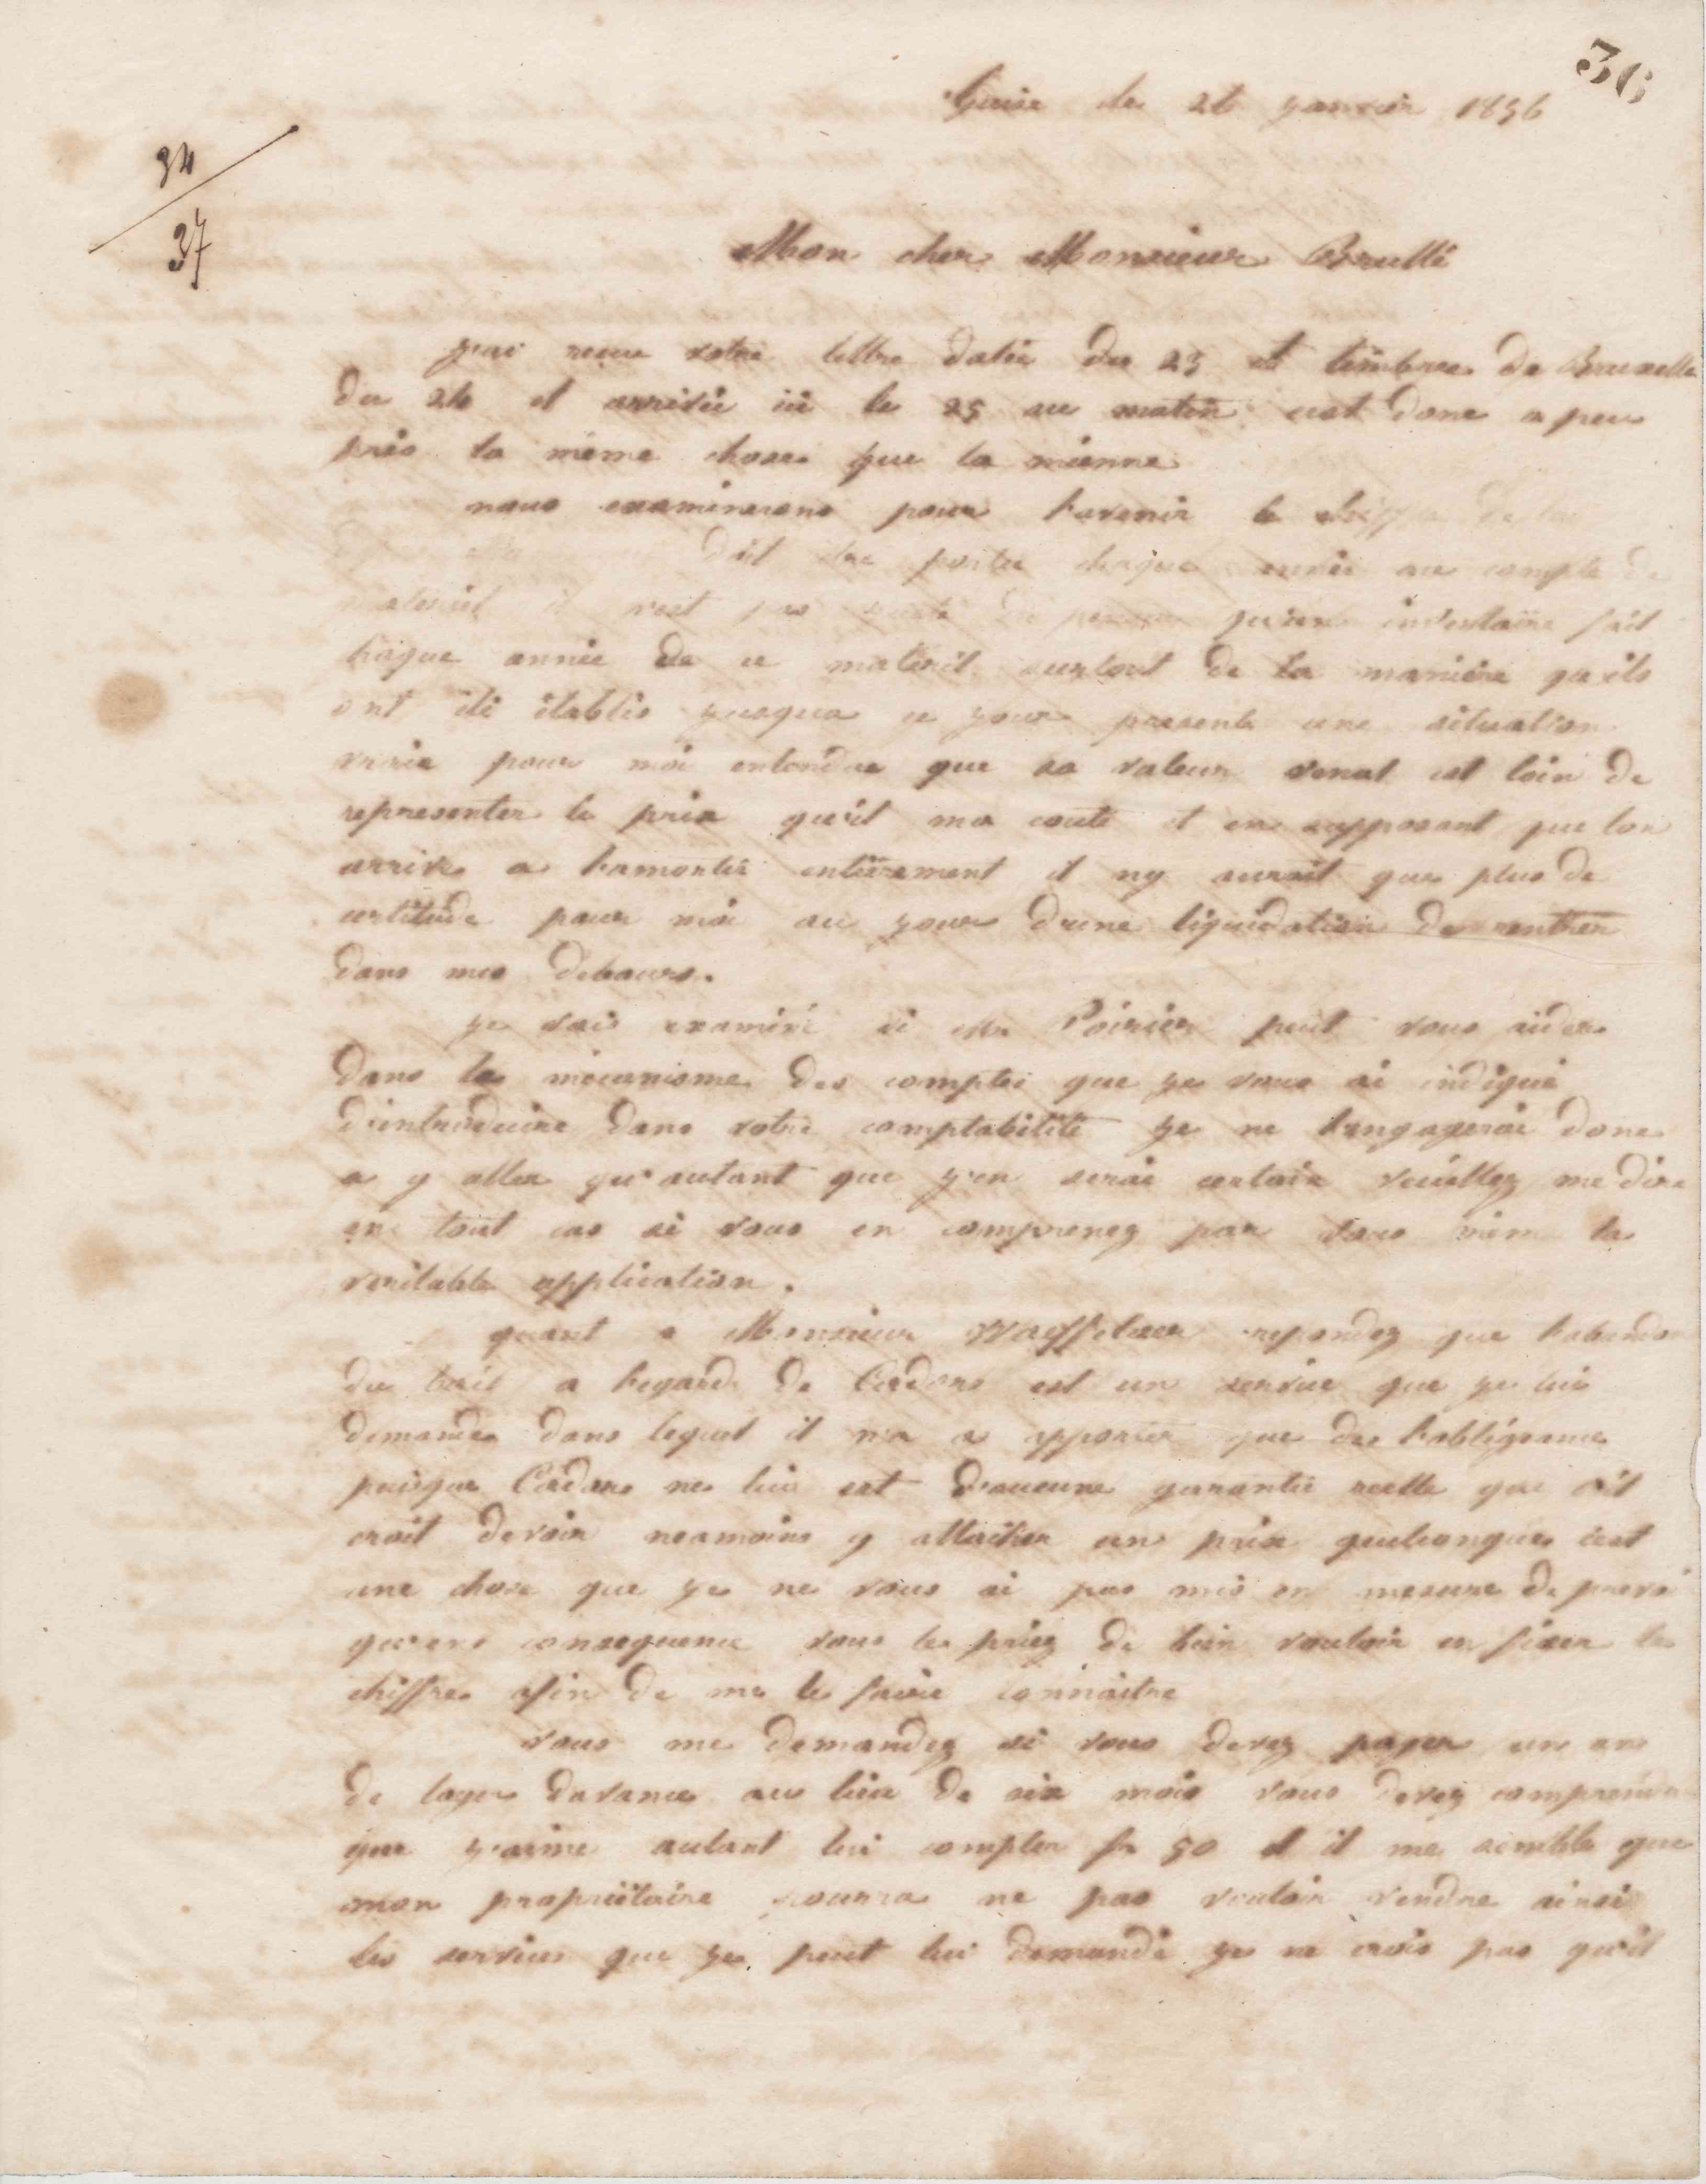 36
Guise le 26 janvier 1856
34
37
Mon cher Monsieur Brullé
j'ai reçue votre lettre datée du 23 et timbree de Bruxelle
du 24 et arrivée ici le 25 au matin cest donc a peu
près la même chose que la mienne
nous examinerons pour l'avenir le chiffre de la
doit être portée chaque année au compte de
materiel il n'est pas qu'un inventaire fait
chaque année de ce materiel surtout de la manière qu'ils
ont été établis jusqua ce jour presente une situation
vraie pour moi entendre que sa valeur venal est loin de
representer le prix qu'il ma couté et en supposant que lon
arrive a lamortir entièrement il ny aurait que plus de
certitude pour moi au jour d'une liquidation de rentrer
dans mes debours.
je vais examiné si Mr Poirier peut vous aider
dans le mécanisme des comptes que je vous ai indiqué
d'introduire dans votre comptabilité je ne l'engagerai donc
a y aller qu'autant que j'en serai certain veuillez me dire
en tout cas si vous en comprenez par vous même la
veritable application.
quant a Monsieur repondez que l'abandon
du bail a legard de Cardon est un service que je lui
demande dans lequel il n'a a apporter que de l'obligeance
puisque Cardon ne lui est d'aucune garantie reelle que s'il
croit devoir neamoins y attacher un prix quelconque cest
une chose que je ne vous ai pas mis en mesure de prevoi
qu'en consequence vous le priez de bien vouloir en fixer le
chiffre afin de me le faire connaitre
vous me demandez si vous devez payer un an
de loyer davance au lieu de six mois vous devez comprendre
que j'aime autant lui compter fr 50 et il me semble que
mon propriétaire pourra ne pas vouloir vendre ainsi
les services que je peut lui demandé je ne crois pas qu'il